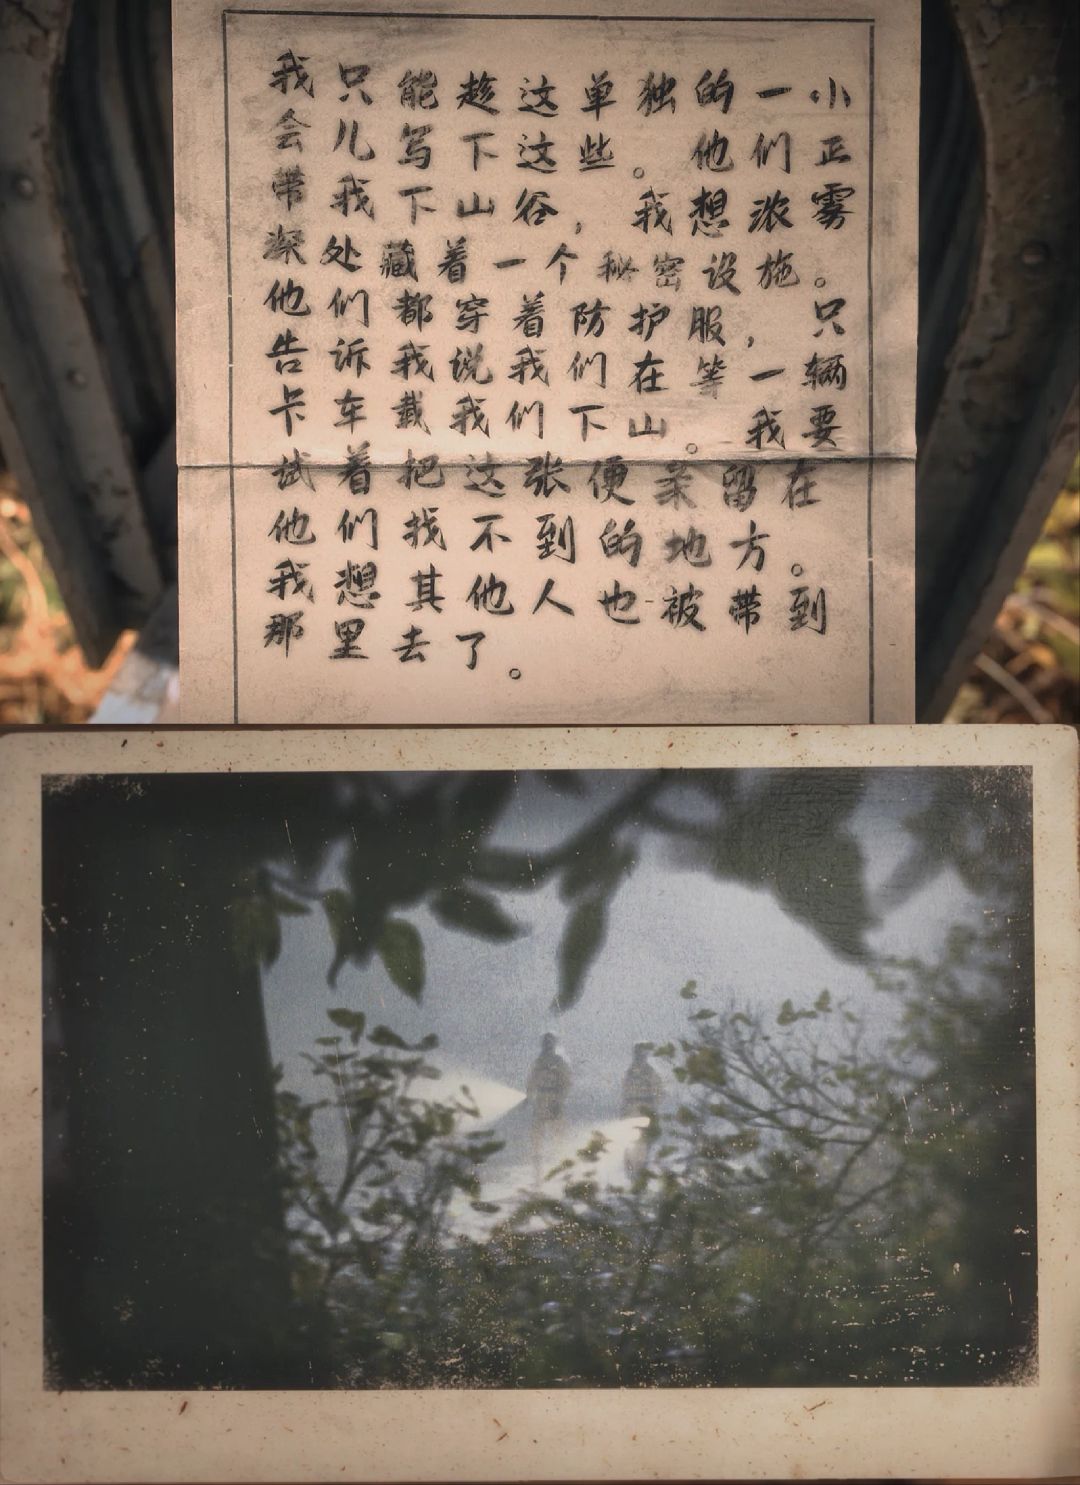 我只能趁这单独的一小
会儿写下这些。他们正
带我下山谷，我想浓雾
深处藏着一个秘密设施。
他们都穿着防护服，只
告诉我说我们在等一辆
卡车载我们下山。我要
试着把这张便条留在
他们找不到的地方。
我想其他人也被带到
那里去了。